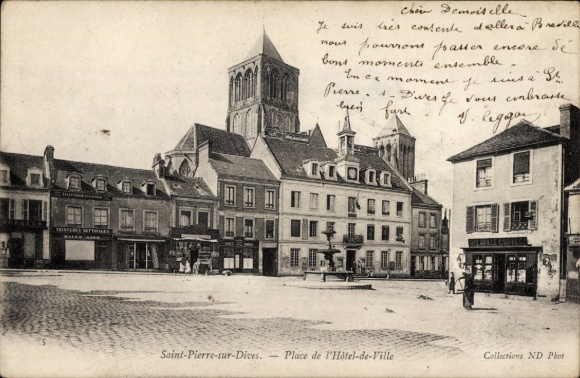 Chère Demoiselle
Je suis très contente d'aller à
nous pourrons passer encore de
bons moments ensemble.
En ce moment je suis à St
Pierre-s-Dives je vous embrasse
bien fort
TEINTURERIE
NETTOYAGE
5
Saint-Pierre-sur-Dives. — Place de l'Hôtel-de-Ville
Collections ND Phot